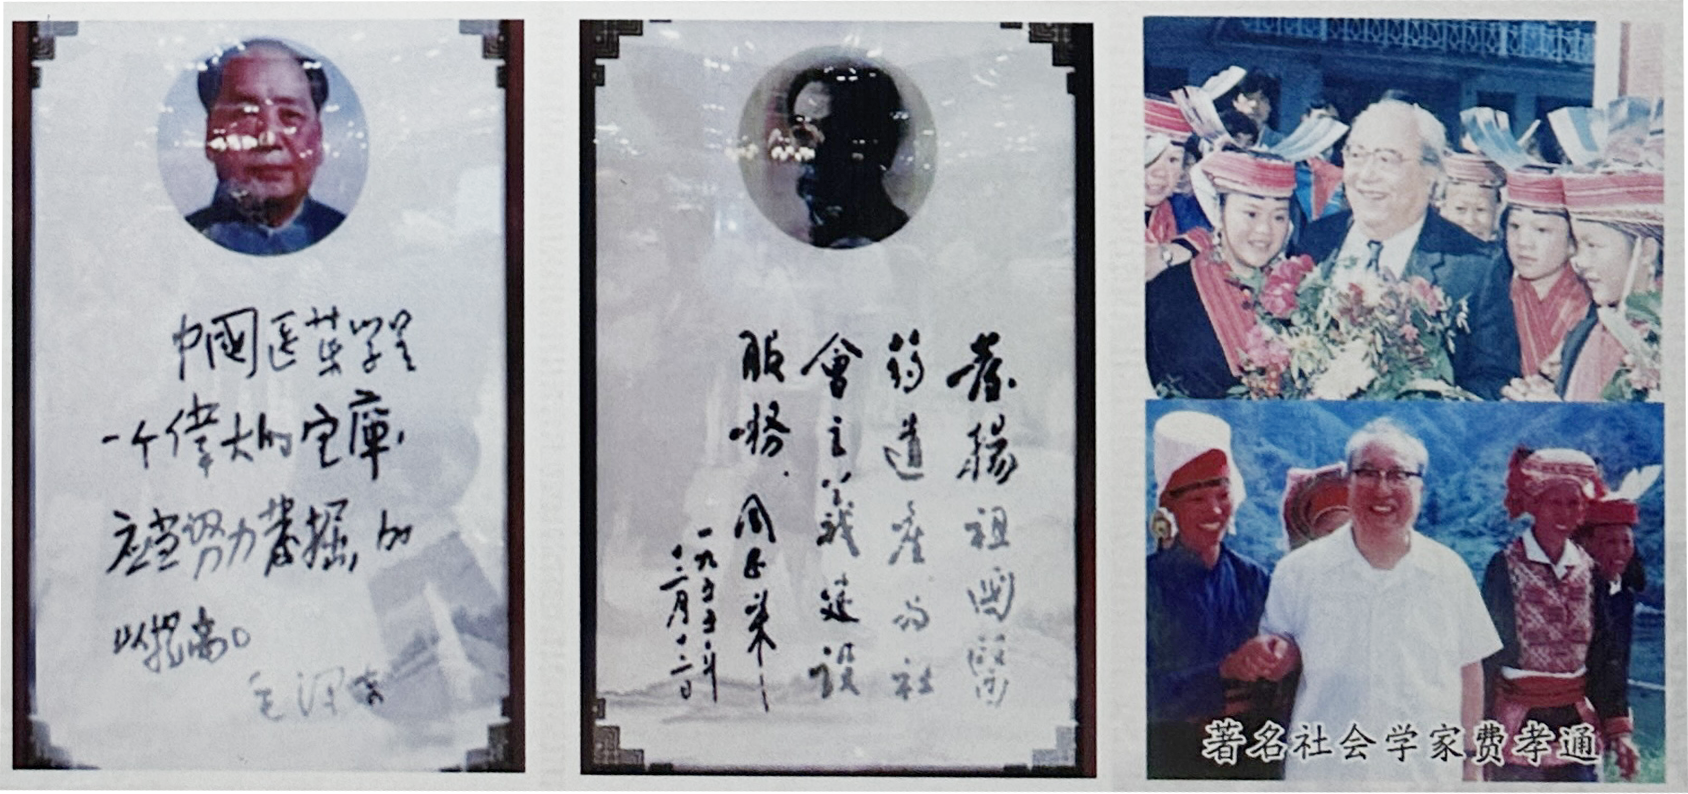 中國医药学是
一个偉大的宝庫,
应当努力發掘,加
以提高。
毛泽东
發揚祖國醫
药遺產为社
會主義建設
服務.周恩来
一九五五年
十二月十二日
著名社会学家费孝通